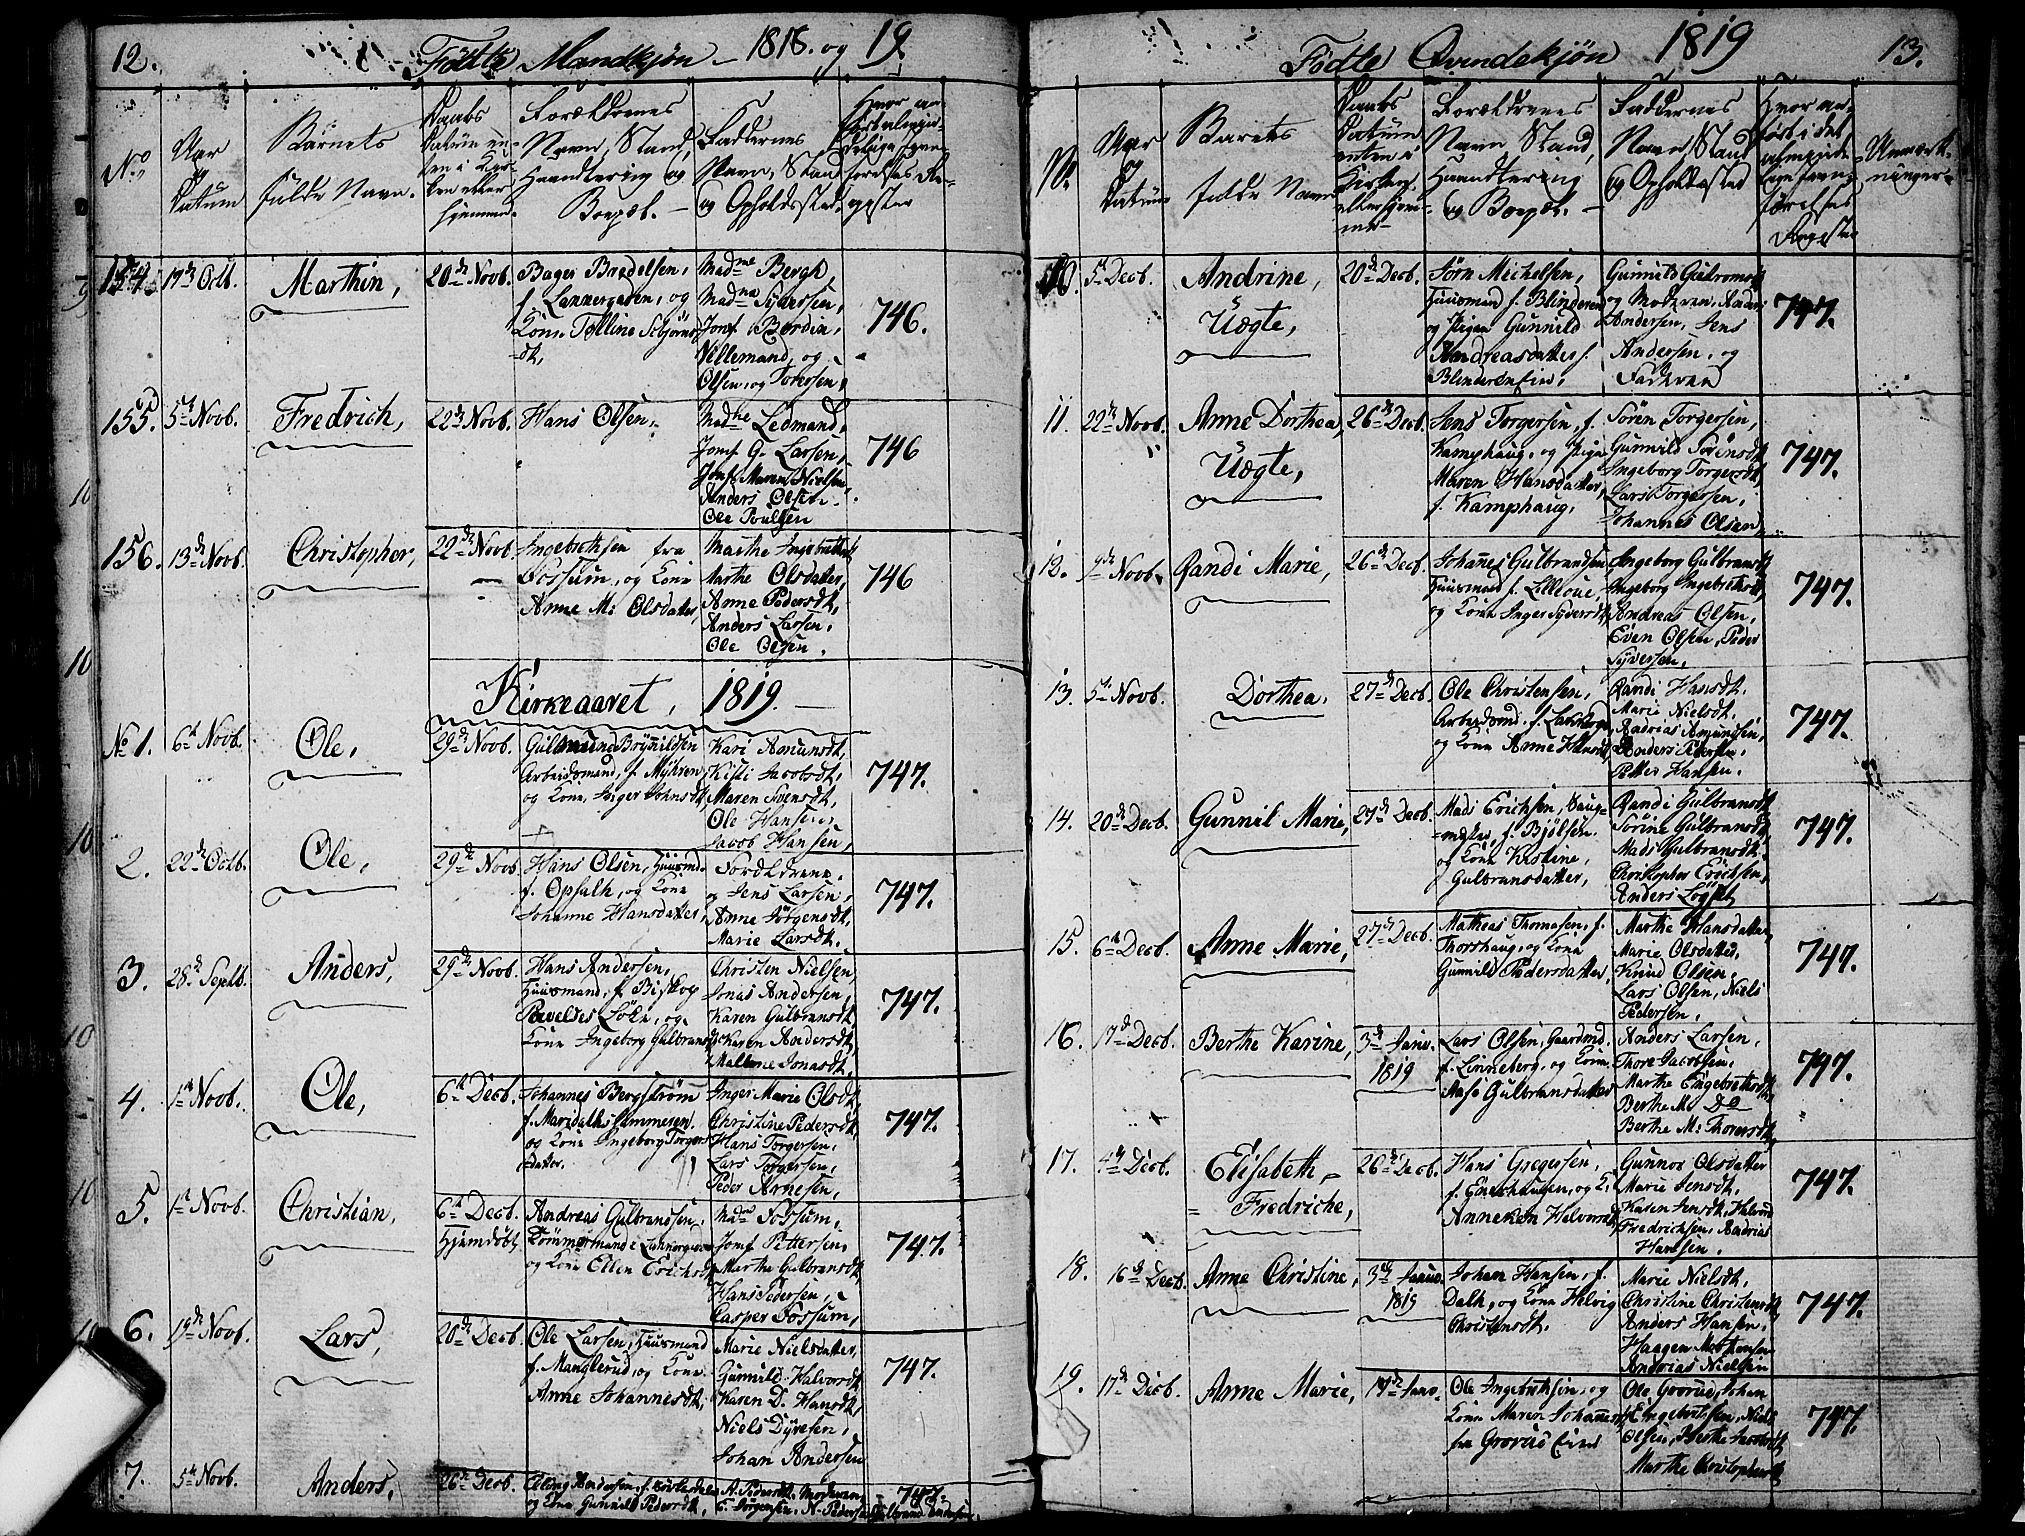 12. Födte Mandkjön - 1818. og 19.
No
Aar
og
Datum
Barnets
fulde Navn.
Daabs
Datum en-
ten i Kir-
ken eller
hjemme.
Forældrenes
Navn, Stand,
Haandtering og
Boepæl. -
Faddernes
Navn, Stand
og Opholdssted.
154. 17de Octb.
Marthin,
20de Novb.
Bager Bredelsen,
f. Lannergaden, og
Kone Tolline
746.
Madme Bergh,
Madme Syversen,
Jomf. Bordin,
Villemand, og
Olsen, og Torersen,
155. 5te Novb.
Fredrich,
22de Novb.
Hans Olsen,
Madme Ledmand,
Jomf. G. Larsen,
Jomf. Maren Nielsen,
Anders Olsen
Ole Poulsen
746
156. 13de Novb.
Christopher,
22de Novb.
Ingebrethsen fra
Fossum, og Kone
Anne M: Olsdatter,
Marthe
Marthe Olsdatter,
Anne Pedersdt,
Anders Larsen,
Ole Olsen.
746
Kirkeaaret, 1819.
No 1. 6te Novb.
Ole,
29de Novb.
Brÿnildsen
Arbeidsmand, f. Myhren
og Kone, Inger Johnsdt,
Kari Amunsdt,
Kisti Jacobsdt,
Maren Svensdt,
Ole Hansen,
Jacob Hansen,
747.
2. 22de Octb.
Ole,
29de Novb.
Hans Olsen, Huusmd.
f. Opsalh, og Kone
Johanne Hansdatter,
Forældrene
og Jens Larsen,
Anne Jörgensdt,
Marie Larsdt.
747.
3. 28de Septb.
Anders,
29de Novb.
Hans Andersen,
Huusmand, f. Biskop
Pavelses Lökn, og
Kone Ingeborg Gulbransdt
Christen Nielsen,
Jonas Andersen,
Karen Gulbransdt,
Karen Andersdt,
Malene Jonasdt,
747.
4. 1te Novb.
Ole,
6te Decb.
Johannes Bergström
f. Maridals hammeren.
og Kone Ingeborg Torgers
datter.
Inger Marie Olsdt,
Christine Pedersdt,
Hans Torgersen,
Lars Torgersen,
Peder Arnesen,
747.
5. 1te Novb.
Christian,
6te Decb.
Hjemdöbt
Andreas Gulbrandsen,
Tömmermand i
og Kone Ellen Erichsdt
Madme Fossum,
Jomf Pettersen,
Marthe Gulbransdt,
Hans Pedersen,
Casper Fossum,
747.
6. 19de Novb.
Lars,
20de Decb.
Ole Larsen, Huusmand
f. Manglerud, og Kone
Anne Johannesdt,
Marie Nielsdatter,
Gunnild Halvorsdt
Karen D. Hansdt,
Niels Dyresen,
Johan Andersen
747.
7. 5te Novb.
Anders,
26de Decb.
og Kone Gunnild Pedersdt,
747.
Födte Qvindekjön 1819 13.
No.
Aar
og
Datum
Barnets
fulde Navn
Daabs
Datum
enten i
Kirken
eller hjem-
me
Forældrenes
Navn, Stand,
Haandtering
og Boepæl. -
Faddernes
Navn, Stand
og Opholdssted
Hvor an-
ført i det
alminde-
lige Jevn-
förelses
Register
Anmærk-
ninger.
10. 5te Decb.
Andrine,
Uægte,
20de Decb.
Jörn Michelsen,
Huusmand f. Blinderen
og Pigen Gunnild
Andreasdatter f.
Blinderen Eie,
og Moderen,
Andersen, Jens
Andersen, og
Faderen
747.
11. 22de Novb.
Anne Dorthea,
Uægte,
26de Decb.
Jens Torgersen, f.
Kamphaug, og Pige
Maren Hansdatter,
f. Kamphaug,
Sören Torgersen,
Gunnild Sörensdt
Ingeborg Torgersdt,
Lars Torgersen,
Johannes Olsen,
747.
12. 9de Novb.
Randi Marie,
26de Decb.
Johannes Gulbrandsen
Huusmand f. Lilloue,
og Kone Inger Syversdt,
Ingeborg Gulbransdt
Ingeborg Ingebretsdt,
Andreas Olsen,
Even Olsen, Peder
Syversen,
747.
13. 5te Novb.
Dorthea,
27de Decb.
Ole Christensen,
Arbeidsmd. f.
og Kone Anne Hansdt,
Randi Hansdt.
Marie Nielsdt.
Andrias Amundsen,
Anders Pedersen,
Petter Hansen.
747.
14. 20de Decb.
Gunnil Marie,
27de Decb.
Mads Erichsen, Saug-
mester, f. Bjölsen.
og Kone Kistine,
Gulbransdatter,
Randi Gulbransdt
Sörine Gulbransdt,
Mads Gulbransdt,
Christopher Erichsen,
Anders
747.
15. 6te Decb.
Anne Marie,
27de Decb.
Mathias Thomasen, f.
Thorshaug, og Kone
Gunnild Pedersdatter,
Marthe Hansdatter,
Marie Olsdatter,
Knud Olsen,
Lars Olsen, Niels
Pedersen,
747.
16. 17de Decb.
Berthe Karine,
3de Janv.
1819
Lars Olsen, Gaardmd.
f. Linneberg, og Kone
Aase Gulbransdatter
Anders Larsen,
Thore Jacobsen,
Marthe Engebretsdt,
Berthe M. Do
Berthe M: Thoresdt,
747.
17. 4de Decb.
Elisabeth
Fredriche,
26de Decb.
Hans Gregersen,
f. Enerhaugen, og K:
Anneken Halvorsdt,
Gunnor Olsdatter
Marie Jensdt,
Karen Jensdt, Halvord
Fredrichsen, Andrias
Hansen.
747.
18. 16de Decb.
Anne Christine,
3de Janv.
1819
Johan Hansen, f.
Dalh, og Kone Helvig
Christensdt.
Marie Nielsdt,
Christine Christensdt
Anders Hansen,
Haagen Mortensen
Andrias Nielsen
747.
19. 17de Decb.
Anne Marie,
Ole Ingebrethsen, og
Kone Maren Johannesdt
fra Grorud Eie
Ole Grorud, Johan
Engebretsen, Niels
Olsen, Berthe Jacobsdt
Marthe Christophersdt
747.